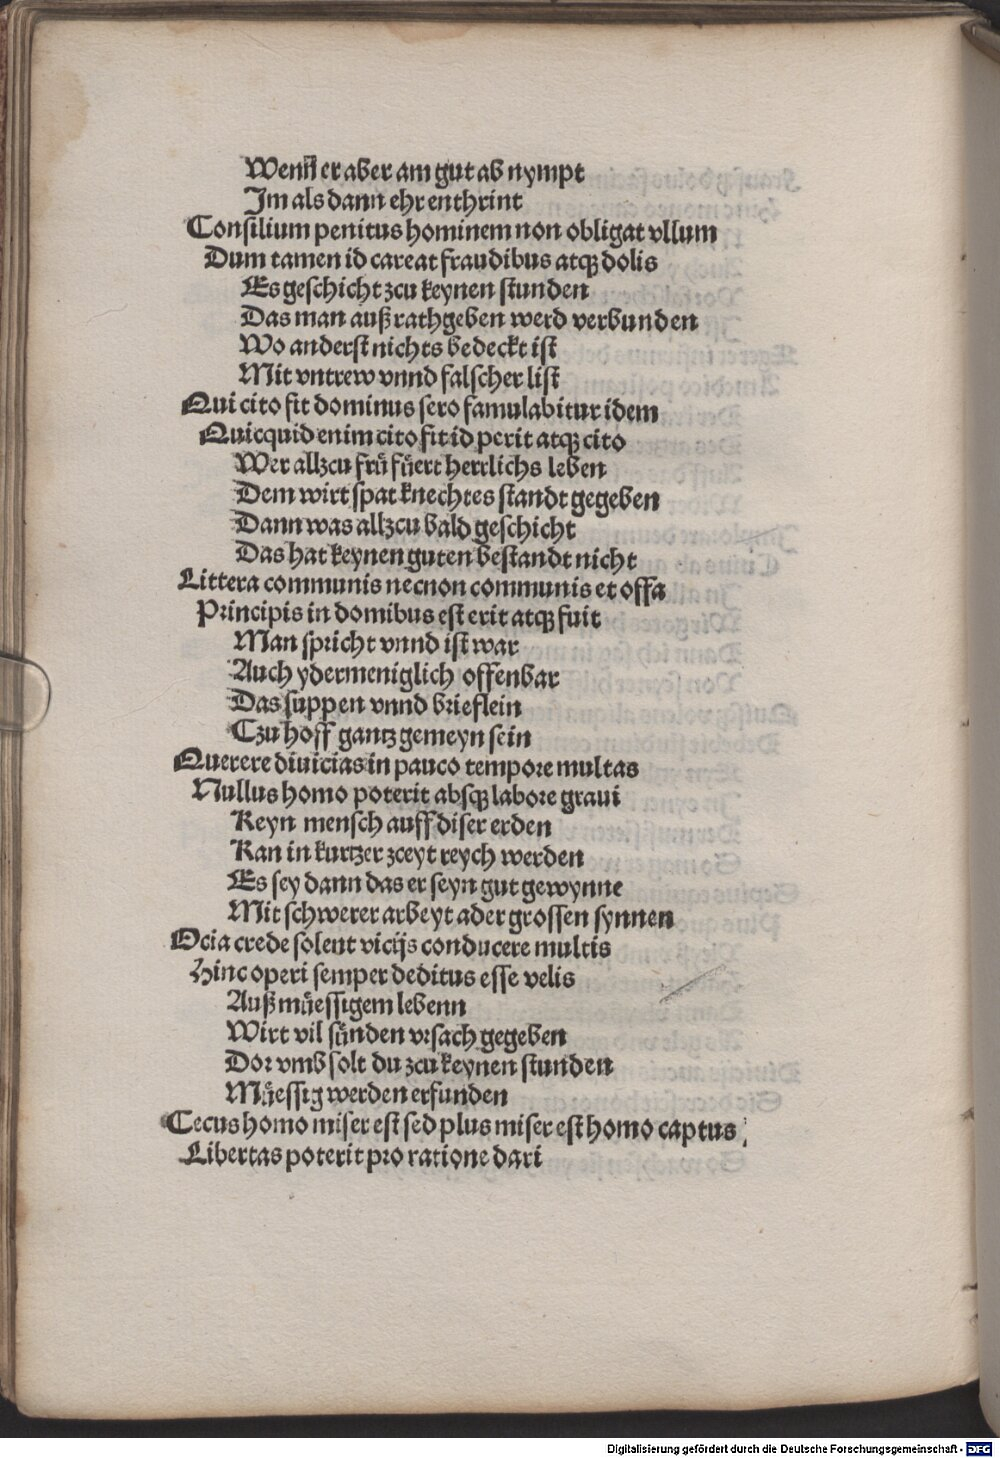 Wenn er aber am gut ab nympt
Im als dann ehr enthrint
Consilium penitus hominem non obligat vllum
Dum tamen id careat fraudibus atqꝫ dolis
Es geschicht zcu keynen stunden
Das man auß rathgeben werd verbunden
Wo anderst nichts bedeckt ist
Mit vntrew vnnd falscher list
Qui cito fit dominus sero famulabitur idem
Quicquid enim cito fit id perit atqꝫ cito
Wer allzcu frů fůert herrlichs leben
Dem wirt spat knechtes standt gegeben
Dann was allzcu bald geschicht
Das hat keynen guten bestandt nicht
Littera communis necnon communis et offa
Principis in domibus est erit atqꝫ fuit
Man spricht vnnd ist war
Auch ydermeniglich offenbar
Das suppen vnnd brieflein
Czu hoff gantz gemeyn sein
Querere diuicias in pauco tempore multas
Nullus homo poterit absqꝫ labore graui
Keyn mensch auff diser erden
Kan in kurtzer zceyt reych werden
Es sey dann das er seyn gut gewynne
Mit schwerer arbeyt ader grossen synnen
Ocia crede solent vicijs conducere multis
Hinc operi semper deditus esse velis
Auß můessigem lebenn
Wirt vil sůnden vrsach gegeben
Dor vmb solt du zcu keynen stunden
Můessig werden erfunden
Cecus homo miser est sed plus miser est homo captus
Libertas poterit pro ratione dari
Digitalisierung gefördert durch die Deutsche Forschungsgemeinschaft - DFG